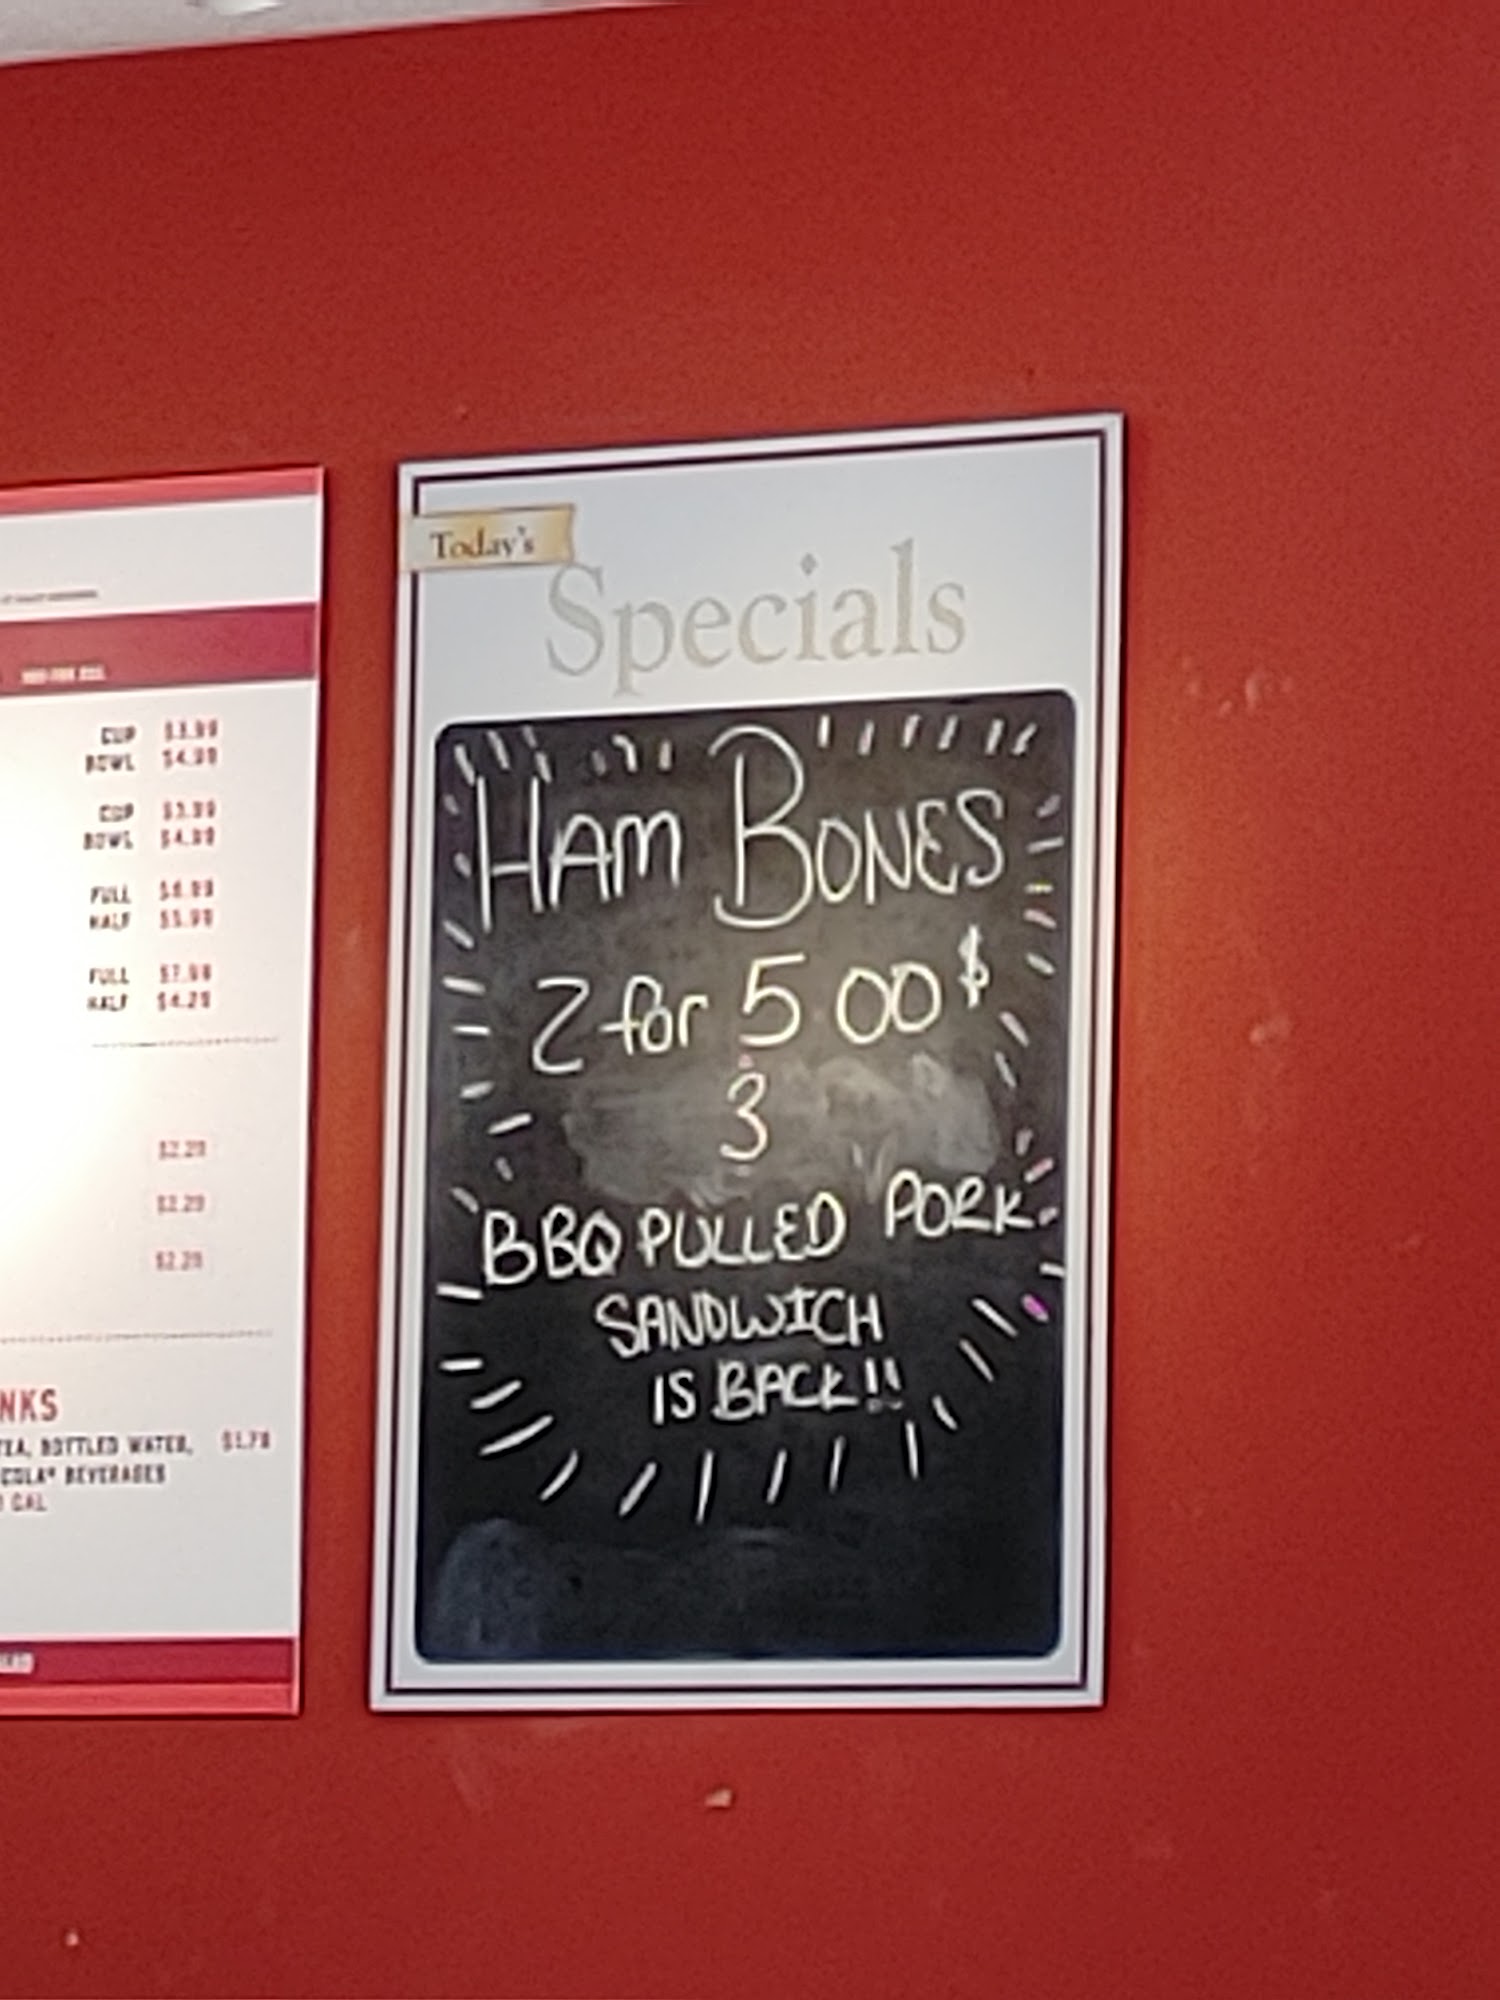 CUP $3.99
BOWL $4.99
CUP $3.99
BOWL $4.99
FULL
HALF $5.99
FULL
HALF $4.29
$2.29
$2.29
$2.29
NKS
TEA, BOTTLED WATER, $1.79
COLA® BEVERAGES
CAL
Today's
Specials
HAM BONES
2 for 5 00 $
3
BBQ PULLED PORK
SANDWICH
IS BACK!!